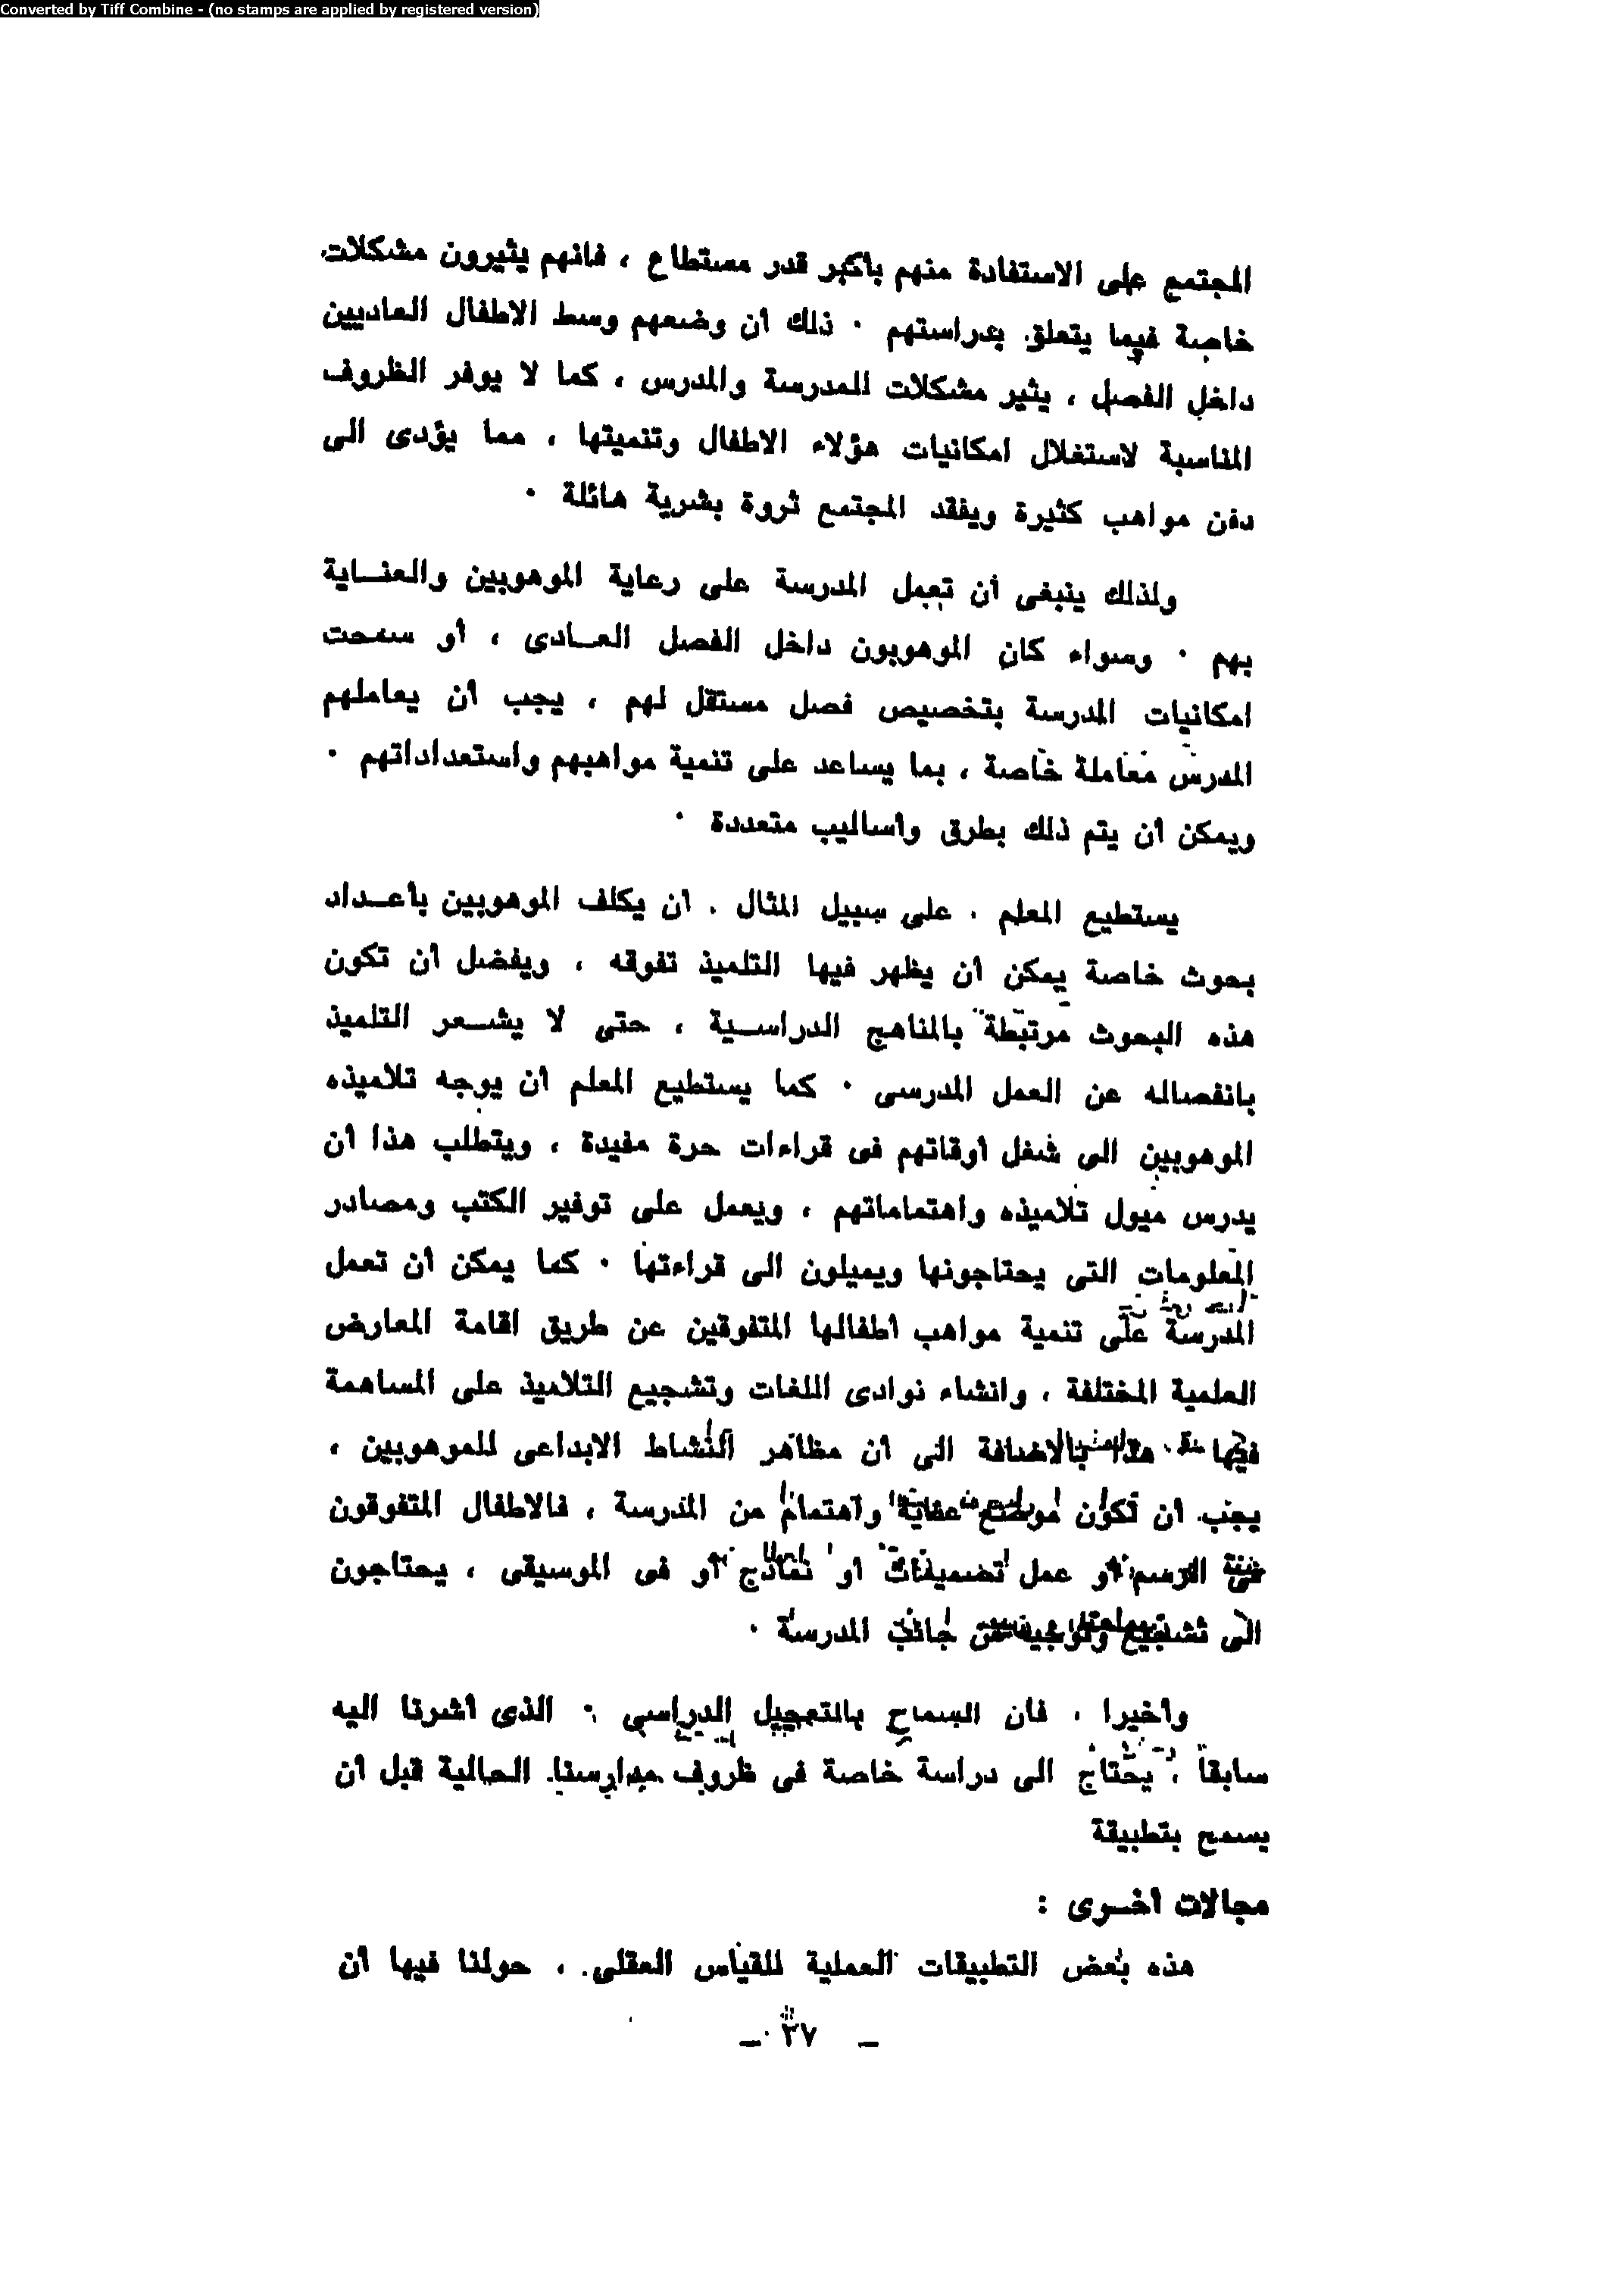 Converted by Tiff Combine - (no stamps are applied by registered version)
المجتمع على الاستفادة منهم بأكبر قدر مستطاع ، فانهم يثيرون مشكلات
خاصة فيما يتعلق بدراستهم ٠ ذلك أن وضعهم وسط الاطفال العاديين
داخل الفصل ، يثير مشكلات للمدرسة والمدرس ، كما لا يوفر الظروف
المناسبة لاستغلال امكانيات هؤلاء الاطفال وتنميتها ، مما يؤدى الى
دفن مواهب كثيرة ويفقد المجتمع ثروة بشرية هائلة ٠
ولذلك ينبغى أن تعمل المدرسة على رعاية الموهوبين والعنــاية
بهم ٠ وسواء كان الموهوبون داخل الفصل العــادى ، أو سمحت
امكانيات المدرسة بتخصيص فصل مستقل لهم ، يجب أن يعاملهم
المدرس معاملة خاصة ، بما يساعد على تنمية مواهبهم واستعداداتهم ٠
ويمكن أن يتم ذلك بطرق وأساليب متعددة ٠
يستطيع المعلم ، على سبيل المثال ، أن يكلف الموهوبين بأعــداد
بحوث خاصة يمكن أن يظهر فيها التلميذ تفوقه ، ويفضل أن تكون
هذه البحوث مرتبطة بالمناهج الدراســية ، حتى لا يشــعر التلميذ
بانفصاله عن العمل المدرسى ٠ كما يستطيع المعلم أن يوجه تلاميذه
الموهوبين الى شغل أوقاتهم فى قراءات حرة مفيدة ، ويتطلب هذا أن
يدرس ميول تلاميذه واهتماماتهم ، ويعمل على توفير الكتب ومصادر
المعلومات التى يحتاجونها ويميلون الى قراءتها ٠ كما يمكن أن تعمل
المدرسة على تنمية مواهب أطفالها المتفوقين عن طريق اقامة المعارض
العلمية المختلفة ، وانشاء نوادى اللغات وتشجيع التلاميذ على المساهمة
فيها هذا بالاضافة الى أن مظاهر النشاط الابداعى للموهوبين ،
يجب أن تكون موضع عناية واهتمام من المدرسة ، فالاطفال المتفوقون
فى الرسم أو عمل تصميمات أو نماذج أو فى الموسيقى ، يحتاجون
الى تشجيع وتوجيه من جانب المدرسة ٠
وأخيرا ، فان السماح بالتعجيل الدراسى ، الذى أشرنا اليه
سابقا ، يحتاج الى دراسة خاصة فى ظروف مدارسنا الحالية قبل أن
يسمح بتطبيقة
مجالات أخــرى :
هذه بعض التطبيقات العملية للقياس العقلى ، حولنا فيها أن
ـ ٣٧ ـ